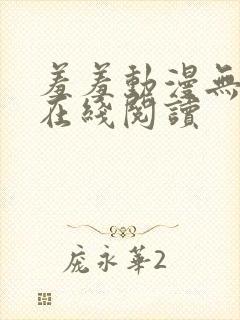 羞羞動漫無
在綫閱讀
龐永華2